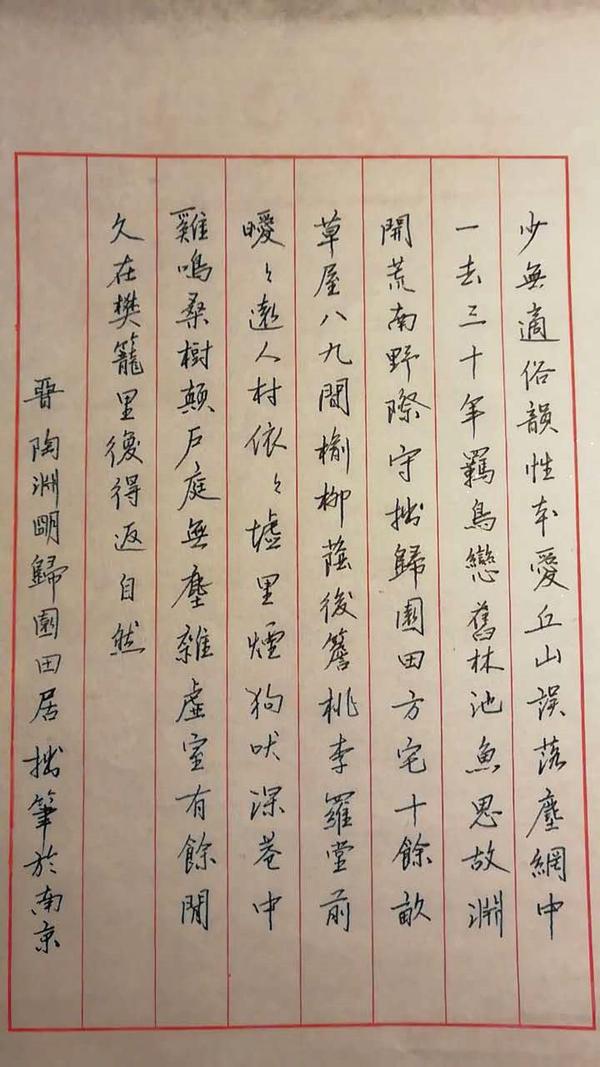 少無適俗韻性本愛丘山誤落塵網中
一去三十年羈鳥戀舊林池魚思故淵
開荒南野際守拙歸園田方宅十餘畝
草屋八九間榆柳蔭後簷桃李羅堂前
曖々遠人村依々墟里煙狗吠深巷中
雞鳴桑樹顛戶庭無塵雜虛室有餘閒
久在樊籠里復得返自然
晋陶淵明歸園田居拙筆於南京